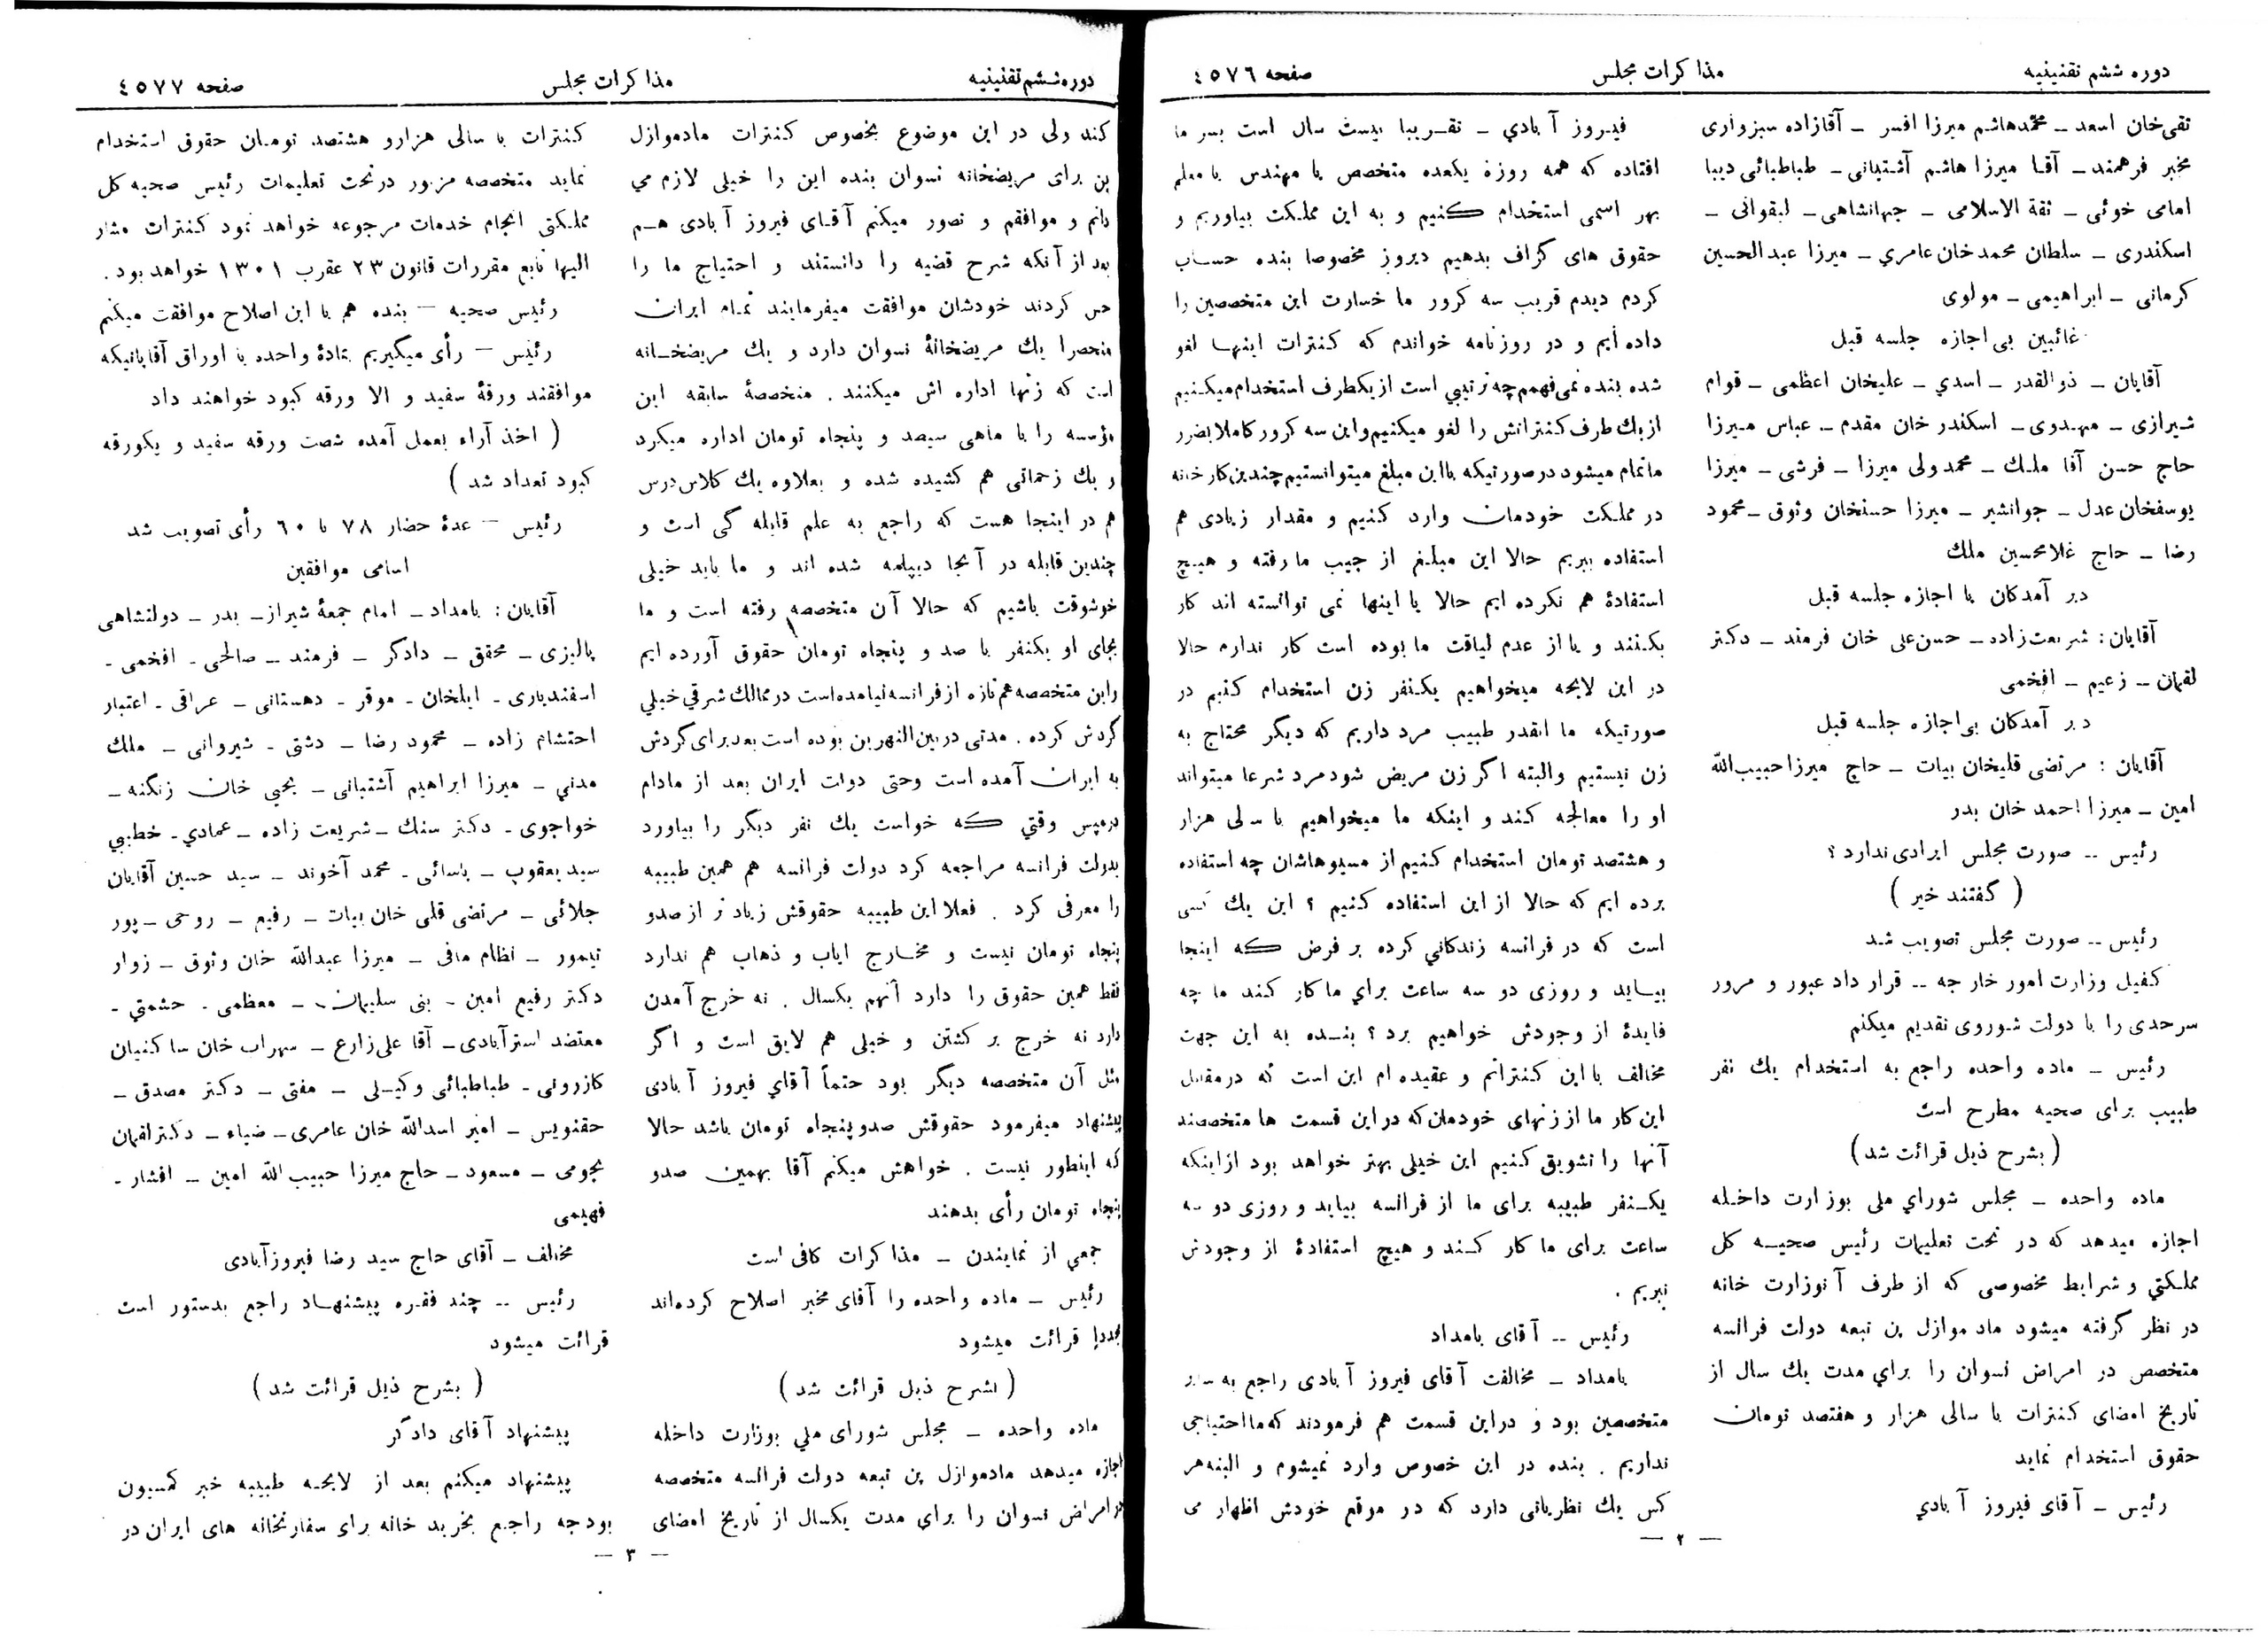 دوره ششم تقنینیه
مذاکرات مجلس
صفحه ٤٥٧٦
تقی‌خان اسعد ـ محمدهاشم میرزا افسر ـ آقازاده سبزواری
مخبر فرهمند ـ آقا میرزا هاشم آشتیانی ـ طباطبائی دیبا
امامی خوئی ـ ثقة الاسلامی ـ جهانشاهی ـ لیقوانی ـ
اسکندری ـ سلطان محمد خان عامري ـ میرزا عبدالحسین
کرمانی ـ ابراهیمی ـ مولوی
غائبین بی اجازه جلسه قبل
آقایان ـ ذوالقدر ـ اسدي ـ علیخان اعظمی ـ قوام
شیرازی ـ مهدوی ـ اسکندر خان مقدم ـ عباس میرزا
حاج حسن آقا ملك ـ محمد ولی میرزا ـ فرشی ـ میرزا
یوسفخان عدل ـ جوانشیر ـ میرزا حسنخان وثوق ـ محمود
رضا ـ حاج غلامحسین ملك
دیر آمدگان با اجازه جلسه قبل
آقایان : شریعت‌زاده ـ حسن‌علی خان فرمند ـ دکتر
لقمان ـ زعیم ـ افخمی
دیر آمدگان بی اجازه جلسه قبل
آقایان : مرتضی قلیخان بیات ـ حاج میرزا حبیب‌الله
امین ـ میرزا احمد خان بدر
رئیس ـ صورت مجلس ایرادی ندارد ؟
( گفتند خیر )
رئیس ـ صورت مجلس تصویب شد
کفیل وزارت امور خارجه ـ قرار داد عبور و مرور
سرحدی را با دولت شوروی تقدیم میکنم
رئیس ـ ماده واحده راجع به استخدام یك نفر
طبیب برای صحیه مطرح است
(بشرح ذیل قرائت شد)
ماده واحده ـ مجلس شورای ملی بوزارت داخله
اجازه میدهد که در تحت تعلیمات رئیس صحیه کل
مملکتي و شرایط مخصوصی که از طرف آنوزارت خانه
در نظر گرفته میشود ماد موازل پن تبعه دولت فرانسه
متخصص در امراض نسوان را برای مدت یك سال از
تاریخ امضای کنترات با سالی هزار و هفتصد تومان
حقوق استخدام نماید
رئیس ـ آقای فیروز آبادي
فیروز آبادي ـ تقریبا بیست سال است بسر ما
افتاده که همه روزه یکعده متخصص یا مهندس یا معلم
بهر اسمی استخدام کنیم و به این مملکت بیاوریم و
حقوق های گزاف بدهیم دیروز مخصوصا بنده حساب
کردم دیدم قریب سه کرور ما خسارت این متخصصین را
داده ایم و در روزنامه خواندم که کنترات اینها لغو
شده بنده نمی‌فهمم چه ترتیبي است از یکطرف استخدام میکنیم
از یك طرف کنتراتش را لغو میکنیم و این سه کرور کاملا بضرر
ما تمام میشود در صورتیکه با این مبلغ میتوانستیم چندین کارخانه
در مملکت خودمان وارد کنیم و مقدار زیادی هم
استفاده ببریم حالا این مبلغ از جیب ما رفته و هیچ
استفادهٔ هم نکرده ایم حالا یا اینها نمی توانسته اند کار
بکنند و یا از عدم لیاقت ما بوده است کار ندارم حالا
در این لایحه میخواهیم یکنفر زن استخدام کنیم در
صورتیکه ما اینقدر طبیب مرد داریم که دیگر محتاج به
زن نیستیم والبته اگر زن مریض شود مرد شرعا میتواند
او را معالجه کند و اینکه ما میخواهیم با سالی هزار
و هشتصد تومان استخدام کنیم از مسیوهاشان چه استفاده
برده ایم که حالا از این استفاده کنیم ؟ این یك کسی
است که در فرانسه زندگاني کرده بر فرض که اینجا
بیاید و روزی دو سه ساعت برای ما کار کند ما چه
فایدهٔ از وجودش خواهیم برد ؟ بنده به این جهت
مخالف با این کنتراتم و عقیده ام این است که در مقابل
این کار ما از زنهای خودمان که در این قسمت ها متخصصند
آنها را تشویق کنیم این خیلی بهتر خواهد بود از اینکه
یکنفر طبیبه برای ما از فرانسه بیاید و روزی دو سه
ساعت برای ما کار کند و هیچ استفادهٔ از وجودش
نبریم .
رئیس ـ آقای بامداد
بامداد ـ مخالفت آقای فیروز آبادی راجع به سایر
متخصصین بود و در این قسمت هم فرمودند که ما احتیاجی
نداریم . بنده در این خصوص وارد نمیشوم و البته هر
کس یك نظریاتی دارد که در موقع خودش اظهار می
— ٢ —
دوره ششم تقنینیه
مذاکرات مجلس
صفحه ٤٥٧٧
کند ولی در این موضوع بخصوص کنترات مادموازل
پن برای مریضخانه نسوان بنده این را خیلی لازم می
دانم و موافقم و تصور میکنم آقای فیروز آبادی هم
بعد از آنکه شرح قضیه را دانستند و احتیاج ما را
حس کردند خودشان موافقت میفرمایند تمام ایران
منحصرا یك مریضخانهٔ نسوان دارد و یك مریضخانه
است که زنها اداره اش میکنند . متخصصهٔ سابقه این
مؤسسه را با ماهی سیصد و پنجاه تومان اداره میکرد
و یك زحماتی هم کشیده شده و بعلاوه یك کلاس درس
هم در اینجا هست که راجع به علم قابله گی است و
چندین قابله در آنجا دیپلمه شده اند و ما باید خیلی
خوشوقت باشیم که حالا آن متخصصه رفته است و ما
بجای او یکنفر با صد و پنجاه تومان حقوق آورده ایم
و این متخصصه هم تازه از فرانسه نیامده است در ممالك شرقي خیلي
گردش کرده . مدتی در بین النهرین بوده است بعد برای گردش
به ایران آمده است وحتی دولت ایران بعد از مادام
درمپس وقتي که خواست یك نفر دیگر را بیاورد
بدولت فرانسه مراجعه کرد دولت فرانسه هم همین طبیبه
را معرفی کرد . فعلا این طبیبه حقوقش زیاد تر از صدو
پنجاه تومان نیست و مخارج ایاب و ذهاب هم ندارد
فقط همین حقوق را دارد آنهم یکسال . نه خرج آمدن
دارد نه خرج بر گشتن و خیلی هم لایق است و اگر
مثل آن متخصصه دیگر بود حتماً آقاي فیروز آبادی
پیشنهاد میفرمود حقوقش صدو پنجاه تومان باشد حالا
که اینطور نیست . خواهش میکنم آقا بهمین صدو
پنجاه تومان رأی بدهند
جمعي از نمایندن ـ مذاکرات کافی است
رئیس ـ ماده واحده را آقای مخبر اصلاح کرده‌اند
مجددا قرائت میشود
(بشرح ذیل قرائت شد)
ماده واحده ـ مجلس شورای ملي بوزارت داخله
اجازه میدهد مادموازل پن تبعه دولت فرانسه متخصصه
در امراض نسوان را برای مدت یکسال از تاریخ امضای
کنترات با سالی هزار و هشتصد تومان حقوق استخدام
نماید متخصصه مزبور در تحت تعلیمات رئیس صحیه کل
مملکتی انجام خدمات مرجوعه خواهد نمود کنترات مشار
الیها تابع مقررات قانون ٢٣ عقرب ١٣٠١ خواهد بود .
رئیس صحیه — بنده هم با این اصلاح موافقت میکنم
رئیس — رأی میگیریم بمادهٔ واحده با اوراق آقایانیکه
موافقند ورقهٔ سفید و الا ورقه کبود خواهند داد
( اخذ آراء بعمل آمده شصت ورقه سفید و یکورقه
کبود تعداد شد )
رئیس — عدهٔ حضار ٧٨ با ٦٠ رأی تصویب شد
اسامی موافقین
آقایان : بامداد ـ امام جمعهٔ شیراز ـ بدر ـ دولتشاهی
پالیزی ـ محقق ـ دادگر ـ فرمند ـ صالحی ـ افخمی ـ
اسفندیاری ـ ایلخان ـ موقر ـ دهستانی ـ عراقی ـ اعتبار
احتشام زاده ـ محمود رضا ـ دشتی ـ شیروانی ـ ملك
مدني ـ میرزا ابراهیم آشتیانی ـ یحیی خان زنگنه ـ
خواجوی ـ دکتر سنك ـ شریعت زاده ـ عمادي ـ خطیبي
سید یعقوب ـ یاسائی ـ محمد آخوند ـ سید حسین آقایان
جلائی ـ مرتضی قلی خان بیات ـ رفیع ـ روحی ـ پور
تیمور ـ نظام مافی ـ میرزا عبدالله خان وثوق ـ زوار
دکتر رفیع امین ـ بنی سلیمان ـ معظمی ـ حشمتي ـ
معتضد استرآبادی ـ آقا علی زارع ـ سهراب خان ساکنیان
کازرونی ـ طباطبائی وکیلی ـ مفتی ـ دکتر مصدق ـ
حقنویس ـ امیر اسدالله خان عامری ـ ضیاء ـ دکتر لقمان
نجومی ـ مسعود ـ حاج میرزا حبیب الله امین ـ افشار ـ
فهیمی
مخالف ـ آقای حاج سید رضا فیروزآبادی
رئیس ـ چند فقره پیشنهاد راجع بدستور است
قرائت میشود
( بشرح ذیل قرائت شد )
پیشنهاد آقای دادگر
پیشنهاد میکنم بعد از لایحه طبیبه خبر کمسیون
بودجه راجع بخرید خانه برای سفارتخانه های ایران در
— ٣ —